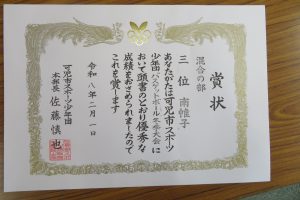 賞状
混合の部
三位 南帷子
あなたがたは可児市スポーツ
少年団バスケットボール冬季大会に
おいて頭書のとおり優秀な
成績をおさめられましたので
これを賞します
令和八年二月一日
可児市スポーツ少年団
本部長 佐藤慎也